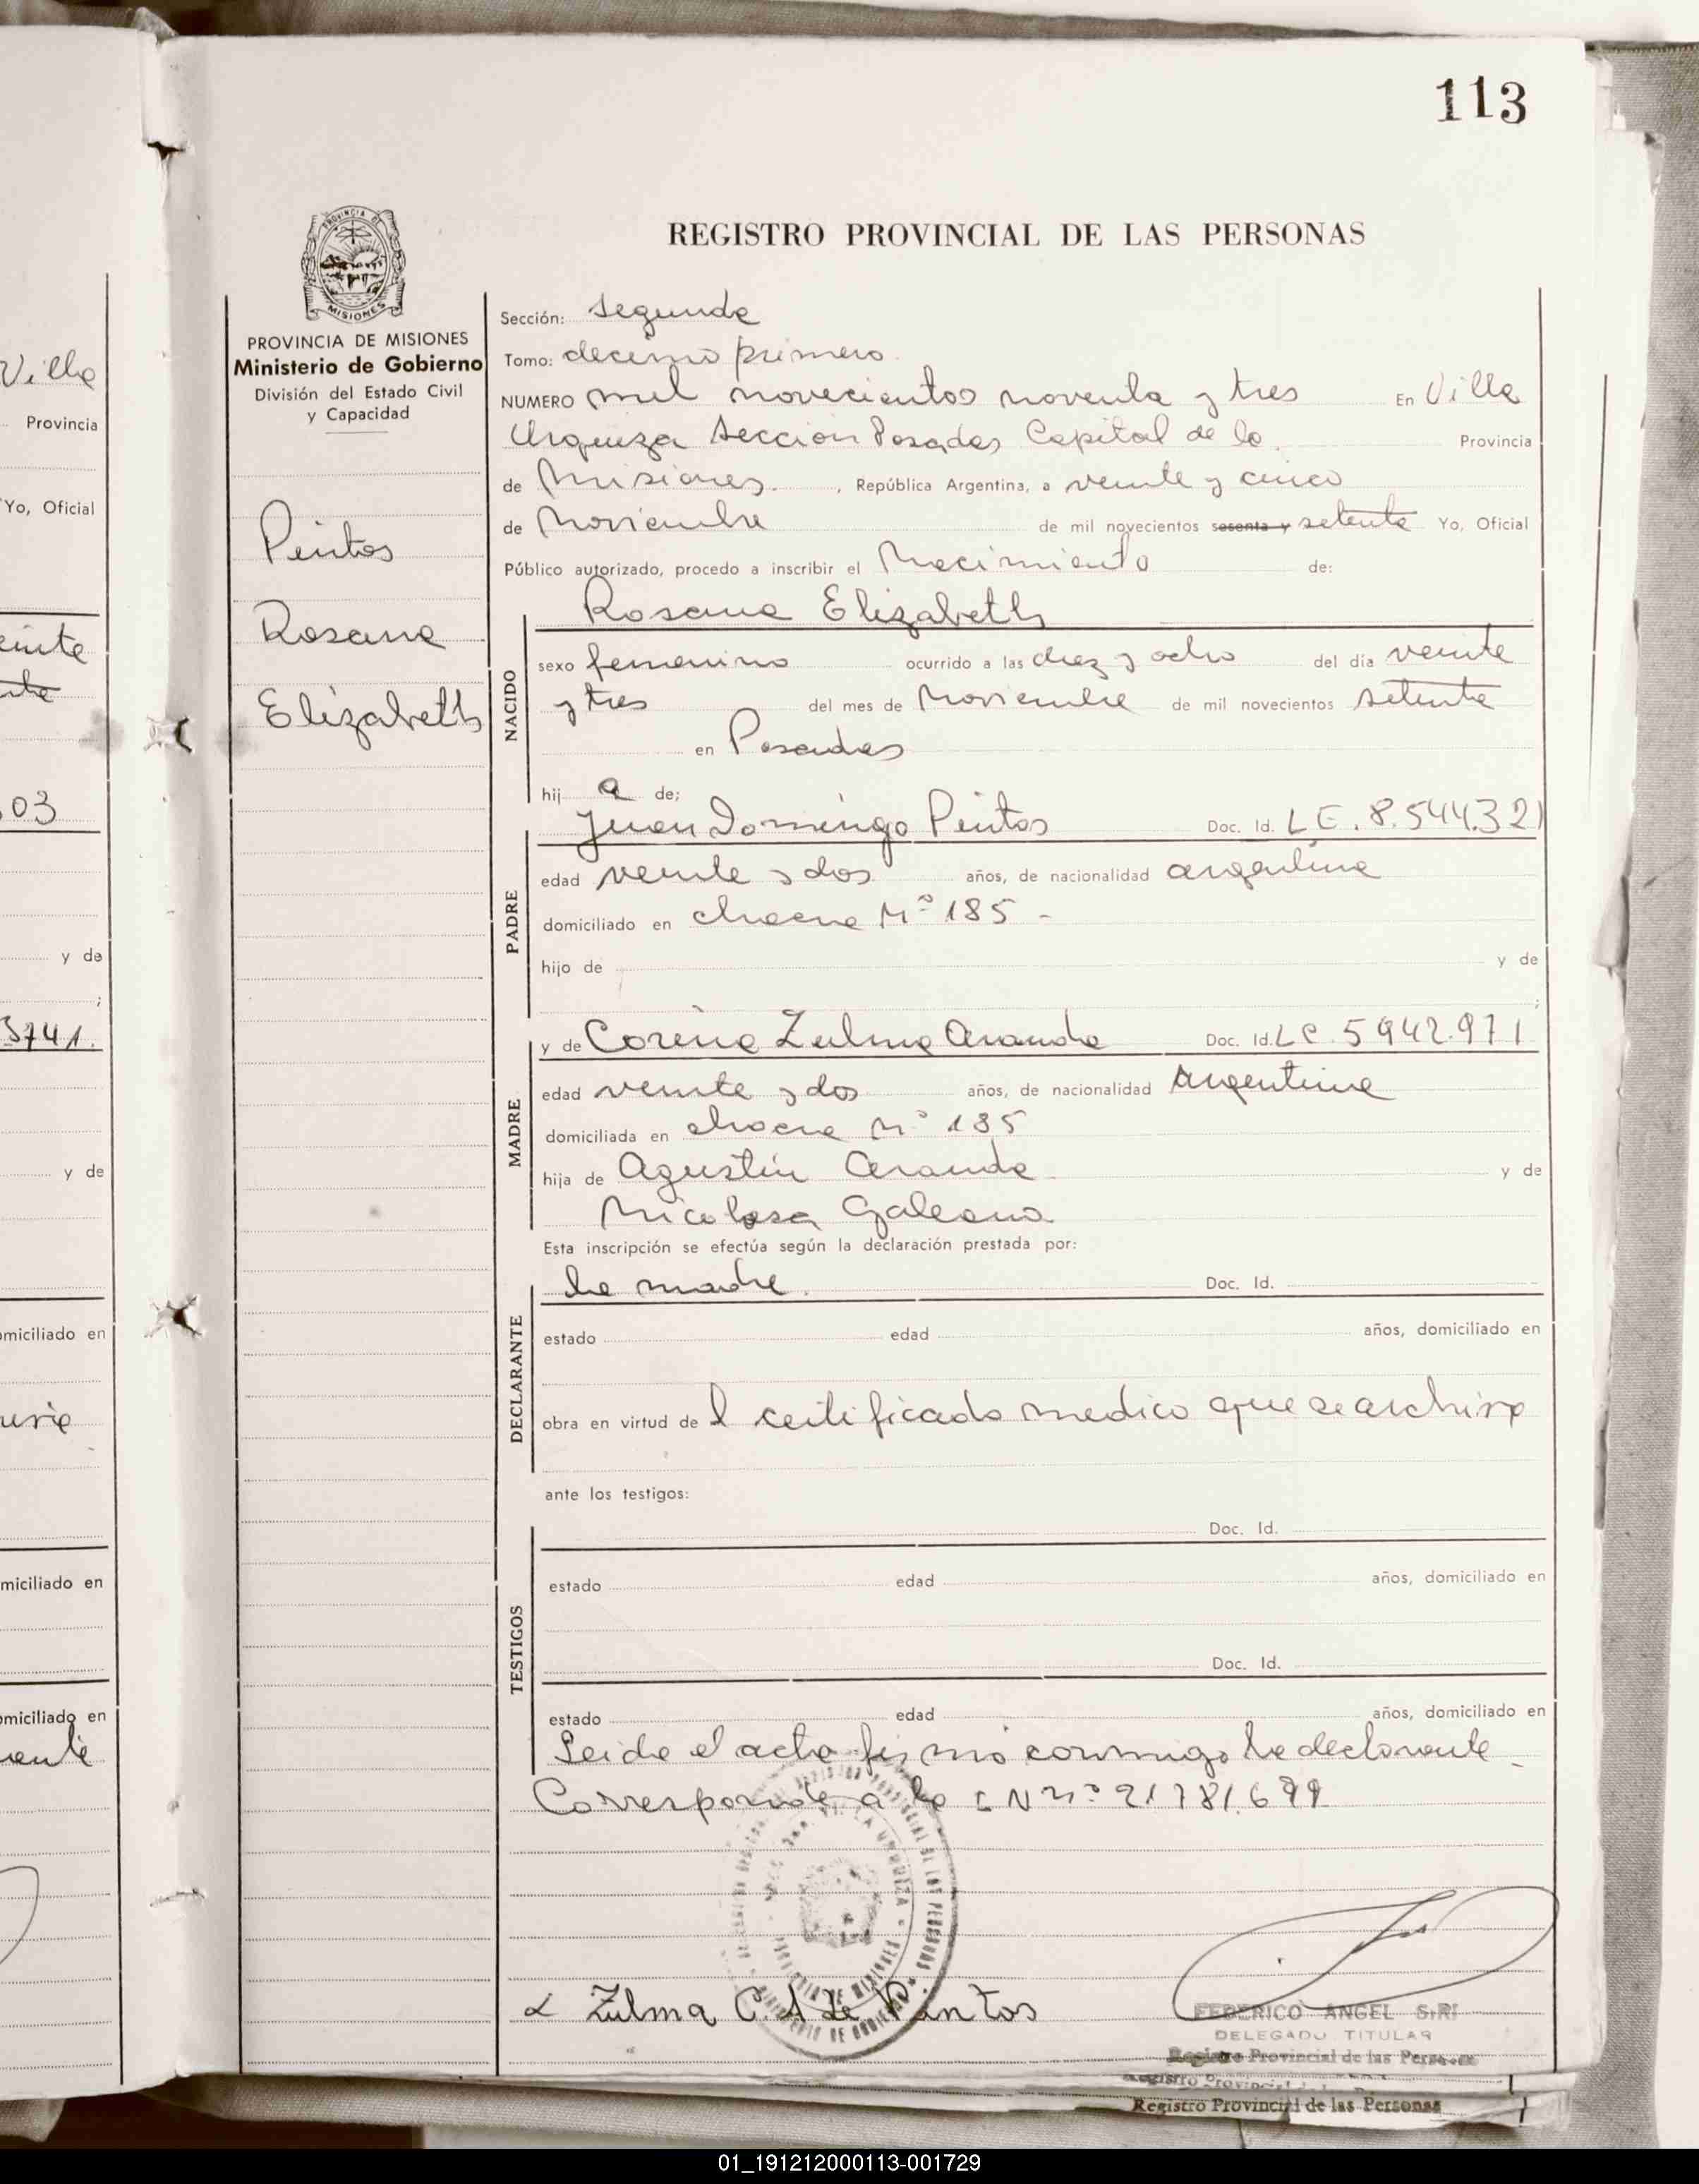 113
REGISTRO PROVINCIAL DE LAS PERSONAS
PROVINCIA DE MISIONES
Ministerio de Gobierno
División del Estado Civil
y Capacidad
Pintos
Rosana
Elizabeth
Sección: segunda
Tomo: decimo primero
NUMERO mil novecientos noventa y tres En Villa
Urquiza Seccion Posadas Capital de la Provincia
de Misiones , República Argentina, a veinte y cinco
de Noviembre de mil novecientos sesenta y setenta Yo, Oficial
Público autorizado, procedo a inscribir el Nacimiento de:
Rosana Elizabeth
NACIDO
sexo femenino ocurrido a las diez y ocho del día veinte
y tres del mes de Noviembre de mil novecientos setenta
en Posadas
hij a de;
PADRE
Juan Domingo Pintos Doc. Id. LE. 8.544.321
edad veinte y dos años, de nacionalidad argentina
domiciliado en chacra Nº 185 -
hijo de y de
;
MADRE
y de Corina Zulma Aranda Doc. Id. LC. 5942.971
edad veinte y dos años, de nacionalidad Argentina
domiciliada en chacra Nº 185
hija de Agustín Aranda y de
Nicolasa Galeano
Esta inscripción se efectúa según la declaración prestada por:
DECLARANTE
la madre. Doc. Id.
estado edad años, domiciliado en
obra en virtud de l certificado medico que se archiva
ante los testigos:
TESTIGOS
Doc. Id.
estado edad años, domiciliado en
Doc. Id.
estado edad años, domiciliado en
Leida el acta firmó conmigo la declarante -
Corresponde a la nº 21.781.699
Zulma C. A de Pintos
FEDERICO ANGEL
DELEGADO TITULAR
Registro Provincial de las Personas
Registro Provincial de las Personas
Villa
Provincia
Yo, Oficial
03
y de
;
3741.
y de
omiciliado en
miciliado en
omiciliado en
01_191212000113-001729